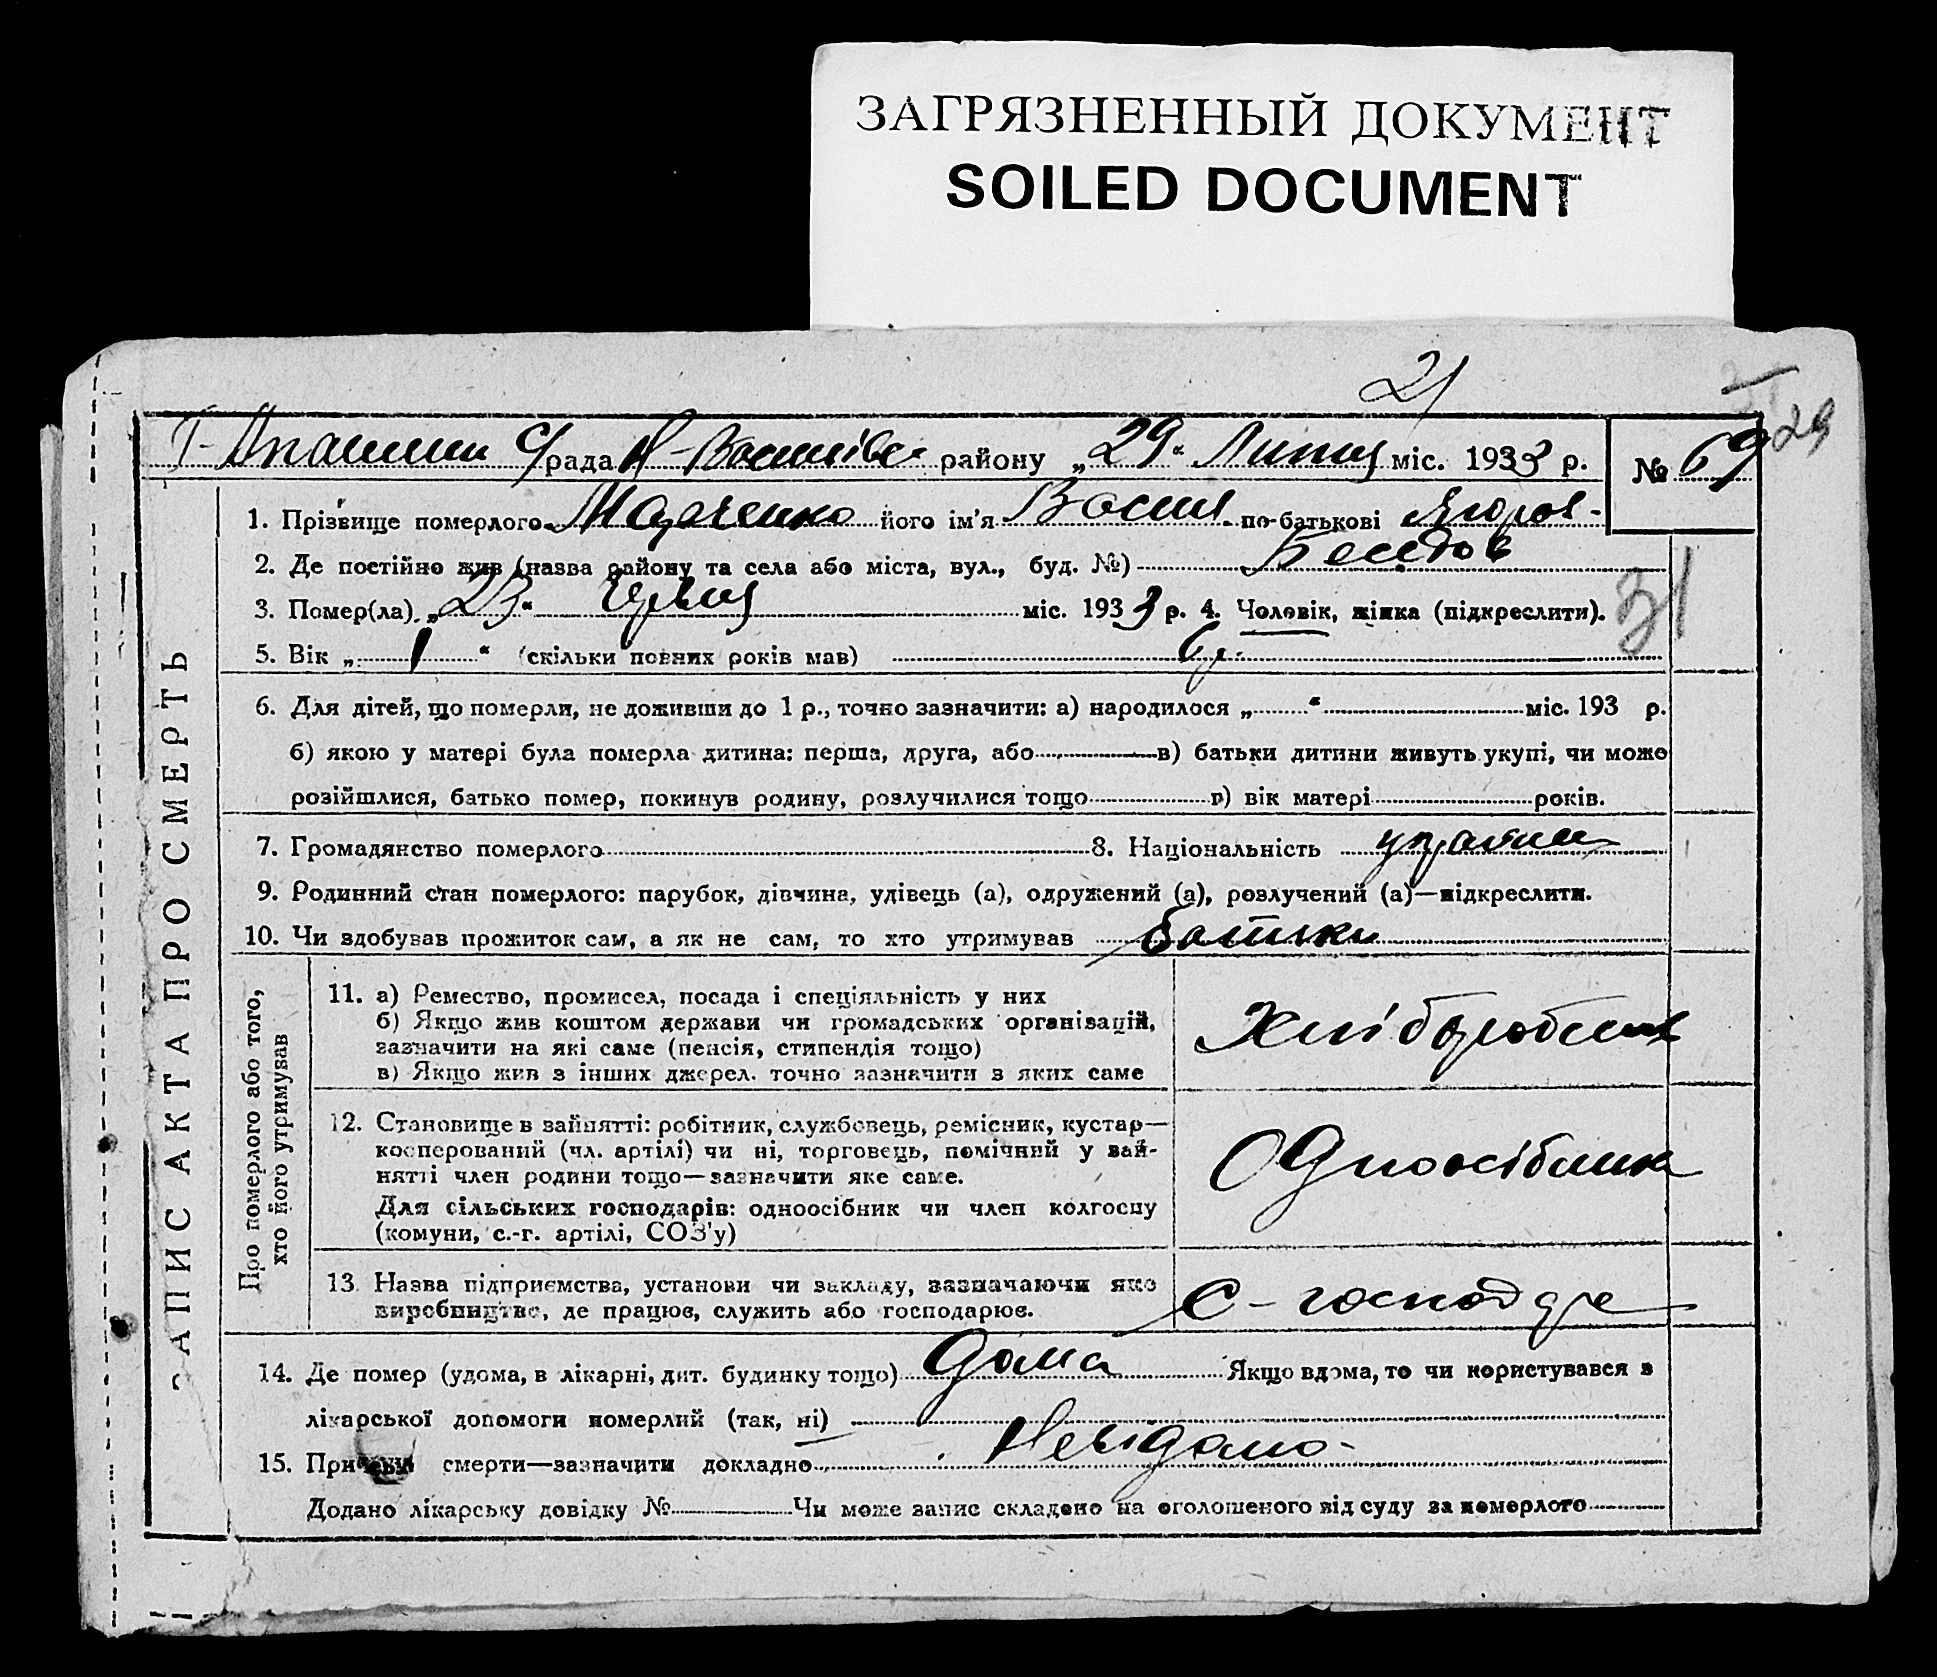 ЗАГРЯЗНЕННЫЙ ДОКУМЕНТ
SOILED DOCUMENT
21
29
с/рада району „29“ Липня міс. 1933 р.
№ 69
1. Прізвище померлого його ім'я Василь по-батькові
2. Де постійно жив (назва району та села або міста, вул., буд. №)
3. Помер(ла) „23“ Червня міс. 1933 р. 4. Чоловік, жінка (підкреслити).
31
5. Вік „1“ (скільки повних років мав)
6. Для дітей, що померли, не доживши до 1 р., точно зазначити: а) народилося „ “ міс. 193 р.
б) якою у матері була померла дитина: перша, друга, або в) батьки дитини живуть укупі, чи може
розійшлися, батько помер, покинув родину, розлучилися тощо г) вік матері років.
7. Громадянство померлого 8. Національність
9. Родинний стан померлого: парубок, дівчина, удівець (а), одружений (а), розлучений (а)—підкреслити.
10. Чи здобував прожиток сам, а як не сам, то хто утримував батьки
ЗАПИС АКТА ПРО СМЕРТЬ
Про померлого або того,
хто його утримував
11. а) Ремество, промисел, посада і спеціяльність у них
б) Якщо жив коштом держави чи громадських організацій,
зазначити на які саме (пенсія, стипендія тощо)
в) Якщо жив з інших джерел, точно зазначити з яких саме
Хліборобства
12. Становище в зайнятті: робітник, службовець, ремісник, кустар—
кооперований (чл. артілі) чи ні, торговець, помічний у зай-
нятті член родини тощо—зазначити яке саме.
Для сільських господарів: одноосібник чи член колгоспу
(комуни, с.-г. артілі, СОЗ'у)
Одноосібник
13. Назва підприємства, установи чи закладу, зазначаючи яке
виробництво, де працює, служить або господарює.
14. Де помер (удома, в лікарні, дит. будинку тощо) дома Якщо вдома, то чи користувався з
лікарської допомоги померлий (так, ні)
15. Причини смерти—зазначити докладно Невідомо
Додано лікарську довідку № Чи може запис складено на оголошеного від суду за померлого